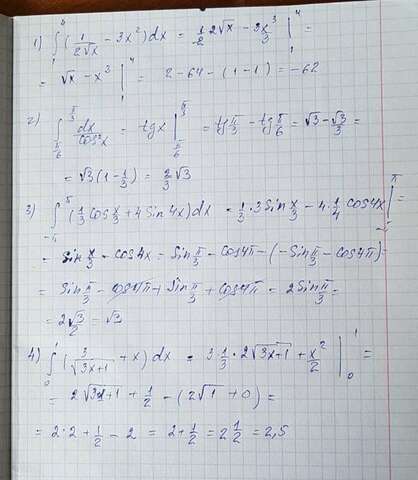 1) ∫₁⁴ (1/(2√x) − 3x²)dx = 1/2 · 2√x − 3x³/3 |₁⁴ =
= √x − x³ |₁⁴ = 2 − 64 − (1 − 1) = −62
2) ∫_{π/6}^{π/3} dx/cos²x = tgx |_{π/6}^{π/3} = tg π/3 − tg π/6 = √3 − √3/3 =
= √3(1 − 1/3) = 2/3 √3
3) ∫_{−π}^{π} (1/3 cos x/3 + 4 Sin 4x)dx = 1/3 · 3 Sin x/3 − 4 · 1/4 cos4x |_{−π}^{π} =
= Sin x/3 − cos4x = Sin π/3 − cos4π − (−Sin π/3 − cos4π) =
= Sin π/3 − cos4π + Sin π/3 + cos4π = 2Sin π/3 =
= 2 √3/2 = √3
4) ∫₀¹ (3/√(3x+1) + x) dx = 3 1/3 · 2√(3x+1) + x²/2 |₀¹ =
= 2√(3·1+1) + 1/2 − (2√1 + 0) =
= 2·2 + 1/2 − 2 = 2 + 1/2 = 2 1/2 = 2,5